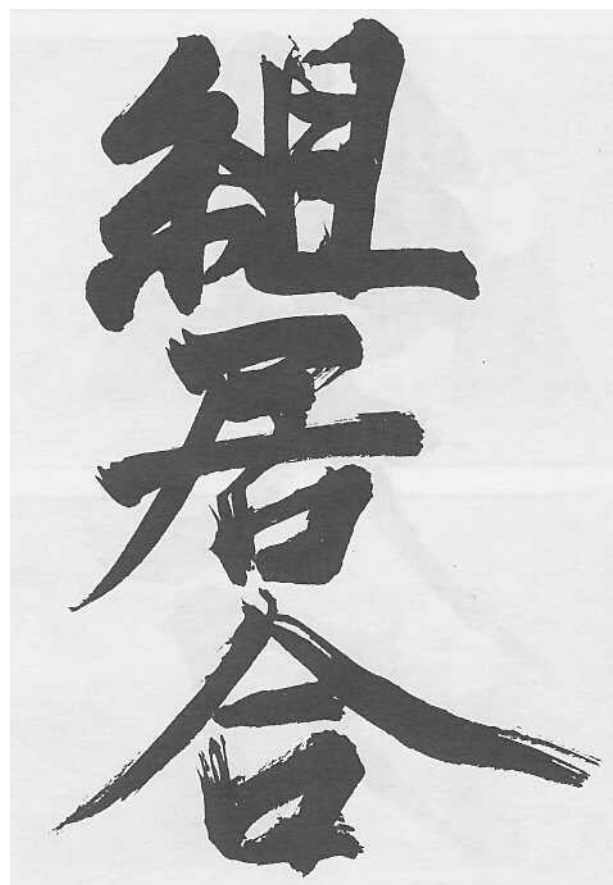 組居合